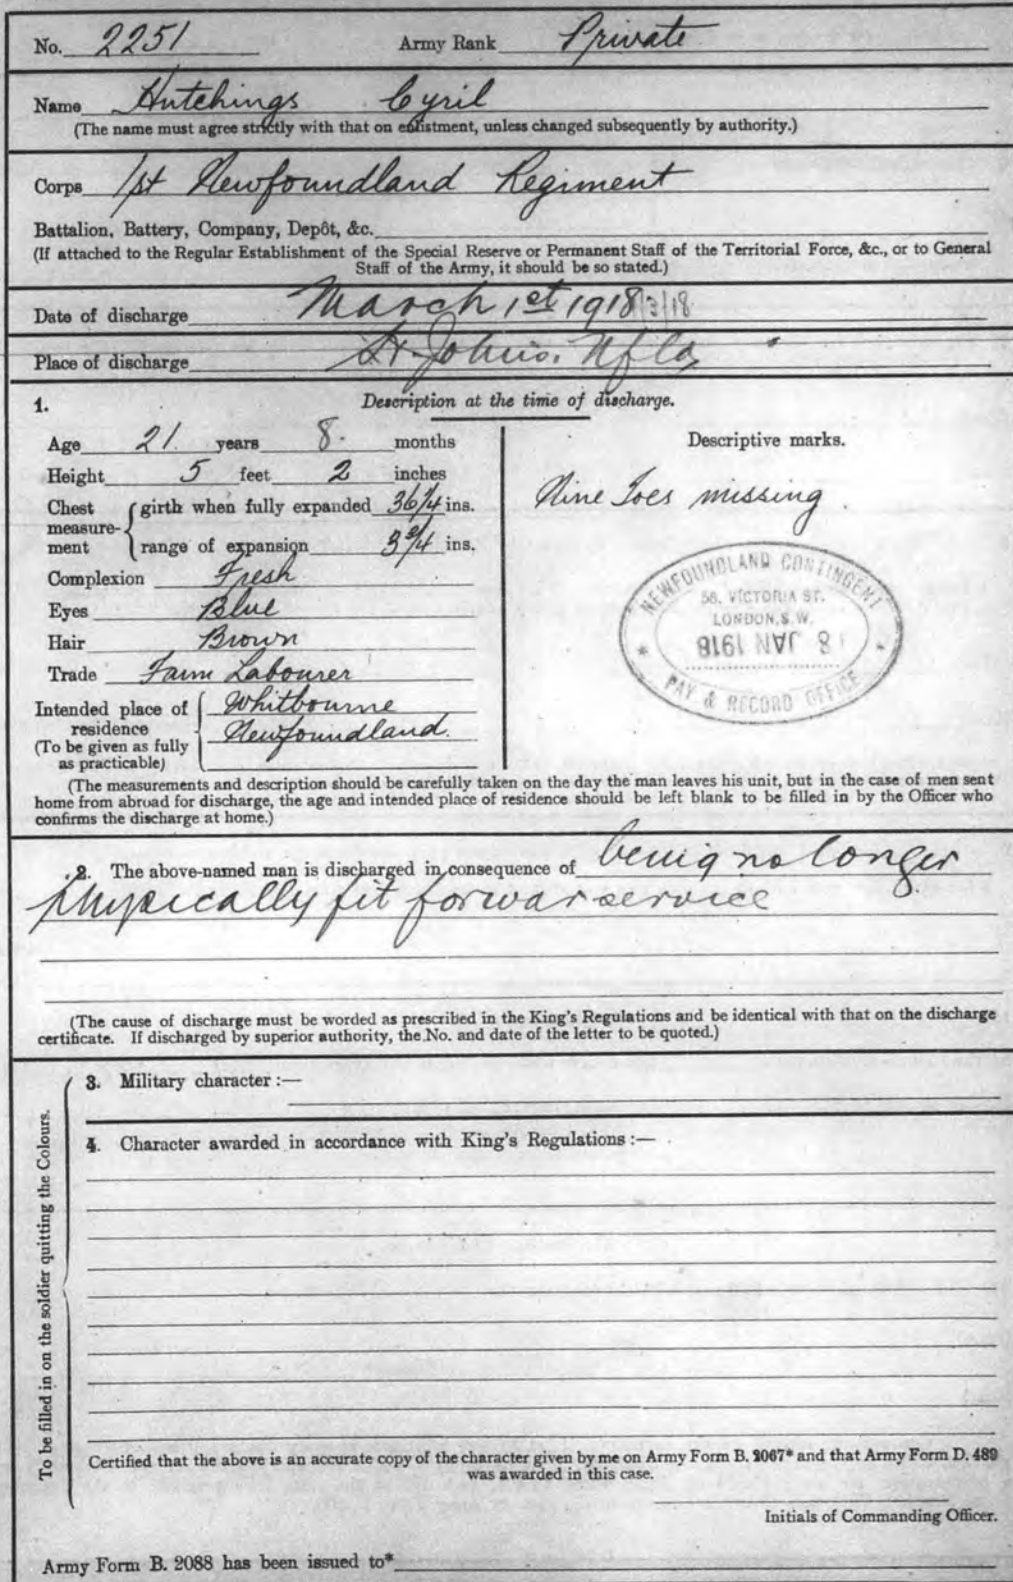 No. 2251 Army Rank Private
Name Hutchings Cyril
(The name must agree strictly with that on enlistment, unless changed subsequently by authority.)
Corps 1st Newfoundland Regiment
Battalion, Battery, Company, Depôt, &c.
(If attached to the Regular Establishment of the Special Reserve or Permanent Staff of the Territorial Force, &c., or to General
Staff of the Army, it should be so stated.)
Date of discharge March 1st 1918 /3/18
Place of discharge St. John's. Nfld
1. Description at the time of discharge.
Age 21 years 8 months
Height 5 feet 2 inches
Chest measure-ment girth when fully expanded 36 1/4 ins.
range of expansion 3 3/4 ins.
Complexion Fresh
Eyes Blue
Hair Brown
Trade Farm Labourer
Intended place of residence Whitbourne
(To be given as fully as practicable) Newfoundland.
Descriptive marks.
Nine Toes missing
NEWFOUNDLAND CONTINGENT
58, VICTORIA ST.
LONDON, S.W.
8 JAN 1918
PAY & RECORD OFFICE
(The measurements and description should be carefully taken on the day the man leaves his unit, but in the case of men sent
home from abroad for discharge, the age and intended place of residence should be left blank to be filled in by the Officer who
confirms the discharge at home.)
2. The above-named man is discharged in consequence of being no longer
physically fit for war service
(The cause of discharge must be worded as prescribed in the King's Regulations and be identical with that on the discharge
certificate. If discharged by superior authority, the No. and date of the letter to be quoted.)
To be filled in on the soldier quitting the Colours.
3. Military character :—
4. Character awarded in accordance with King's Regulations :—
Certified that the above is an accurate copy of the character given by me on Army Form B. 2067* and that Army Form D. 489
was awarded in this case.
Initials of Commanding Officer.
Army Form B. 2088 has been issued to*